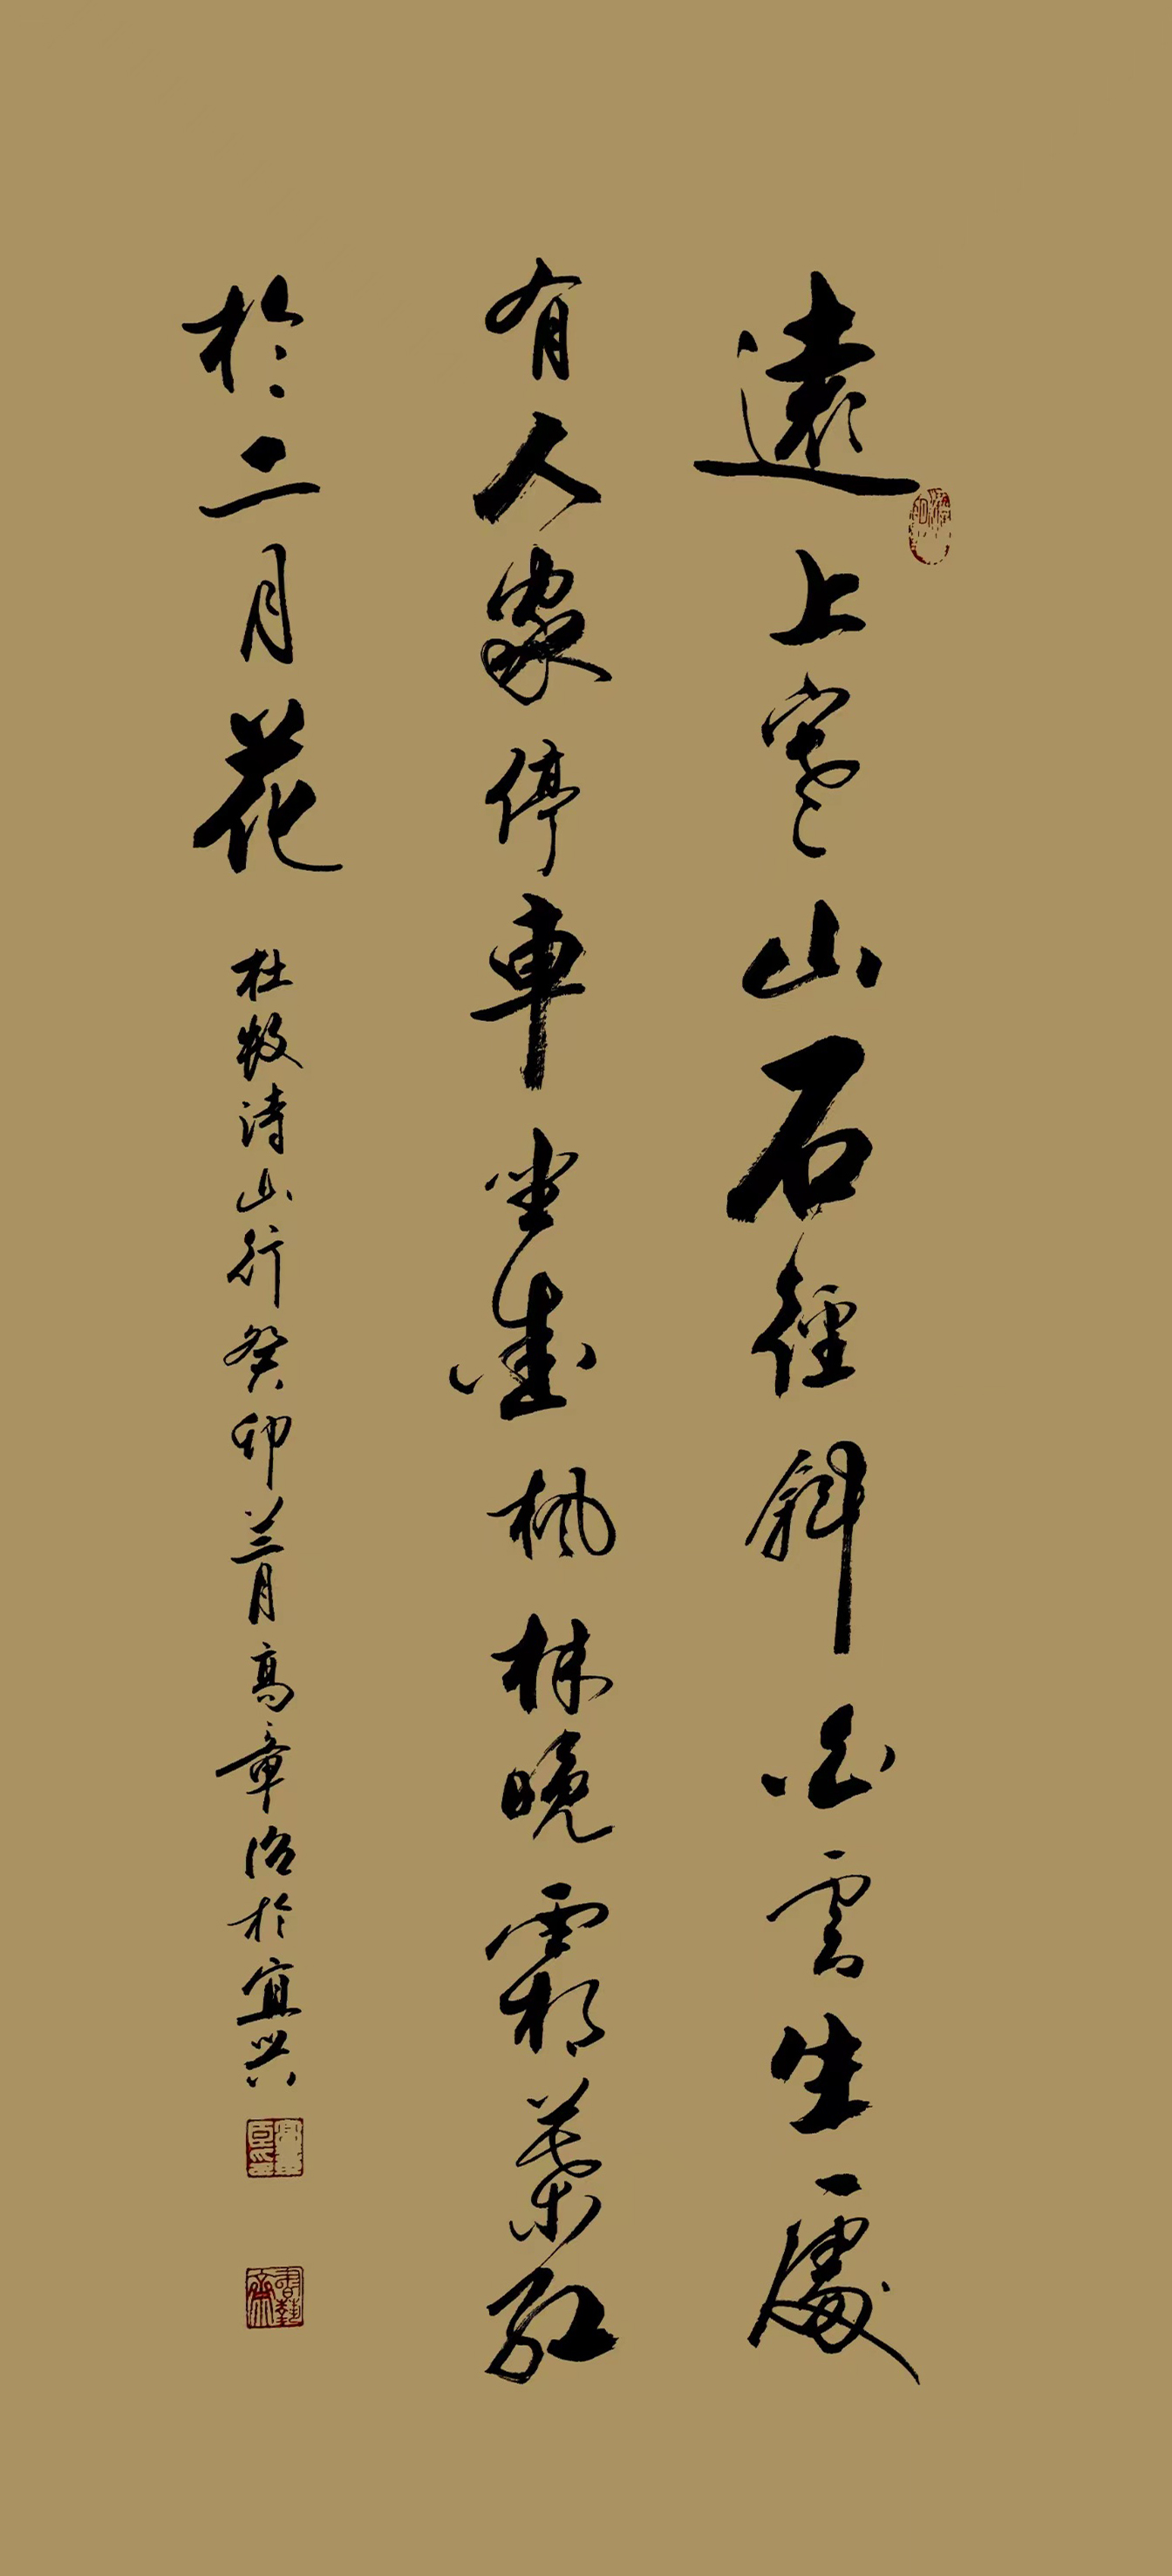 遠上寒山石徑斜白雲生處
有人家停車坐愛楓林晚霜葉紅
於二月花
杜牧詩山行癸卯蘭月高章治於宜兴